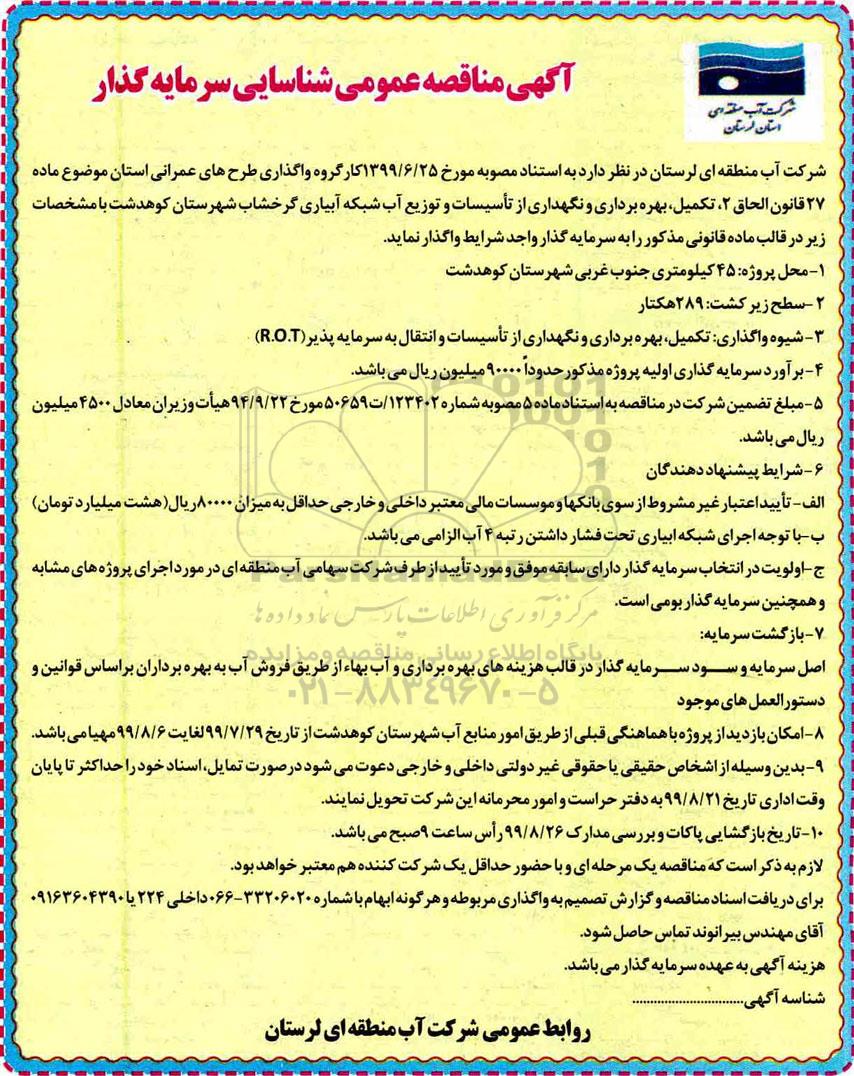 آگهی مناقصه عمومی شناسایی سرمایه گذار
شرکت آب منطقه ای
استان لرستان
شرکت آب منطقه ای لرستان در نظر دارد به استناد مصوبه مورخ ۱۳۹۹/۶/۲۵کارگروه واگذاری طرح های عمرانی استان موضوع ماده
۲۷ قانون الحاق ۲، تکمیل، بهره برداری و نگهداری از تأسیسات و توزیع آب شبکه آبیاری گرخشاب شهرستان کوهدشت با مشخصات
زیر در قالب ماده قانونی مذکور را به سرمایه گذار واجد شرایط واگذار نماید.
۱-محل پروژه: ۴۵ کیلومتری جنوب غربی شهرستان کوهدشت
۲-سطح زیر کشت: ۲۸۹هکتار
۳-شیوه واگذاری: تکمیل، بهره برداری و نگهداری از تأسیسات و انتقال به سرمایه پذیر(R.O.T)
۴-برآورد سرمایه گذاری اولیه پروژه مذکور حدوداً ۹۰۰۰۰میلیون ریال می باشد.
۵-مبلغ تضمین شرکت در مناقصه به استناد ماده ۵ مصوبه شماره ۱۲۳۴۰۲/ت۵۰۶۵۹ مورخ ۹۴/۹/۲۲هیأت وزیران معادل ۴۵۰۰میلیون
ریال می باشد.
۶-شرایط پیشنهاد دهندگان
الف- تأیید اعتبار غیر مشروط از سوی بانکها و موسسات مالی معتبر داخلی و خارجی حداقل به میزان ۸۰۰۰۰ریال(هشت میلیارد تومان)
ب-با توجه اجرای شبکه ابیاری تحت فشار داشتن رتبه ۴ آب الزامی می باشد.
ج-اولویت در انتخاب سرمایه گذار دارای سابقه موفق و مورد تأیید از طرف شرکت سهامی آب منطقه ای در مورد اجرای پروژه های مشابه
و همچنین سرمایه گذار بومی است.
۷-بازگشت سرمایه:
اصل سرمایه و سود سرمایه گذار در قالب هزینه های بهره برداری و آب بهاء از طریق فروش آب به بهره برداران براساس قوانین و
دستورالعمل های موجود
۸-امکان بازدید از پروژه با هماهنگی قبلی از طریق امور منابع آب شهرستان کوهدشت از تاریخ ۹۹/۷/۲۹لغایت ۹۹/۸/۶ مهیا می باشد.
۹-بدین وسیله از اشخاص حقیقی یا حقوقی غیر دولتی داخلی و خارجی دعوت می شود درصورت تمایل، اسناد خود را حداکثر تا پایان
وقت اداری تاریخ ۹۹/۸/۲۱ به دفتر حراست و امور محرمانه این شرکت تحویل نمایند.
۱۰-تاریخ بازگشایی پاکات و بررسی مدارک ۹۹/۸/۲۶ رأس ساعت ۹صبح می باشد.
لازم به ذکر است که مناقصه یک مرحله ای و با حضور حداقل یک شرکت کننده هم معتبر خواهد بود.
برای دریافت اسناد مناقصه و گزارش تصمیم به واگذاری مربوطه و هرگونه ابهام با شماره ۳۳۲۰۶۰۲۰-۰۶۶داخلی ۲۲۴ یا ۰۹۱۶۳۶۰۴۳۹۰
آقای مهندس بیرانوند تماس حاصل شود.
هزینه آگهی به عهده سرمایه گذار می باشد.
شناسه آگهی..............................
روابط عمومی شرکت آب منطقه ای لرستان
ParsNamadData
مرکز فرآوری اطلاعات پارس نماد داده ها
پایگاه اطلاع رسانی مناقصه و مزایده
۰۲۱-۸۸۳۴۹۶۷۰-۵